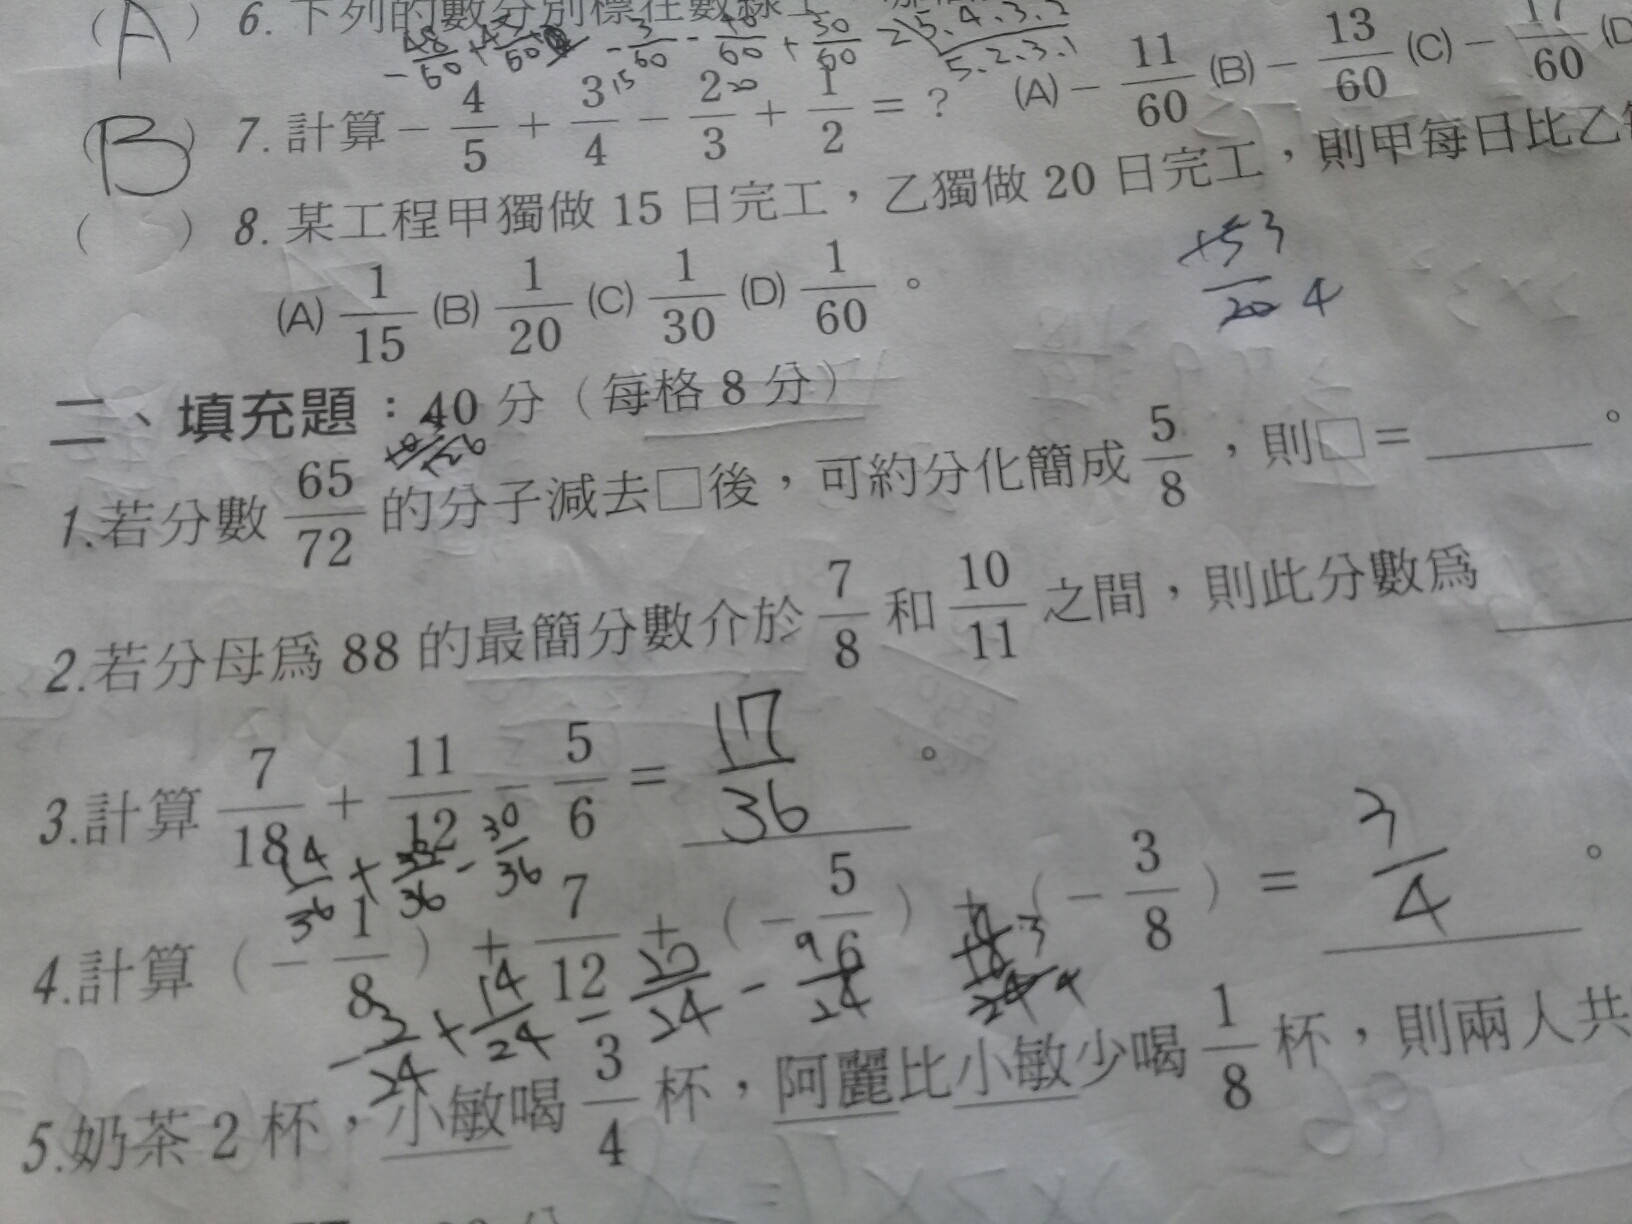 (A) 6. 下列的數分別標在數線上
-48/60 + 45/60 - 3/60 - 40/60 + 30/60 2)5.4.3.2
5.2.3.1
(B) 7. 計算 - 4/5 + 3/4 - 2/3 + 1/2 = ? (A) - 11/60 (B) - 13/60 (C) - 17/60 (D
15 20
( ) 8. 某工程甲獨做 15 日完工,乙獨做 20 日完工,則甲每日比乙
(A) 1/15 (B) 1/20 (C) 1/30 (D) 1/60 。
15 3
20 4
二、填充題:40 分(每格 8 分)
1.若分數 65/72 的分子減去□後,可約分化簡成 5/8 ,則□=____。
2.若分母為 88 的最簡分數介於 7/8 和 10/11 之間,則此分數為____
3.計算 7/18 + 11/12 - 5/6 = 17/36 。
14/36 + 33/36 - 30/36
4.計算 ( - 1/8 ) + 7/12 + ( - 5/6 ) + ( - 3/8 ) = 3/4 。
- 3/24 + 14/24 - 20/24 - 9/24 18/24 3 4
5.奶茶 2 杯,小敏喝 3/4 杯,阿麗比小敏少喝 1/8 杯,則兩人共